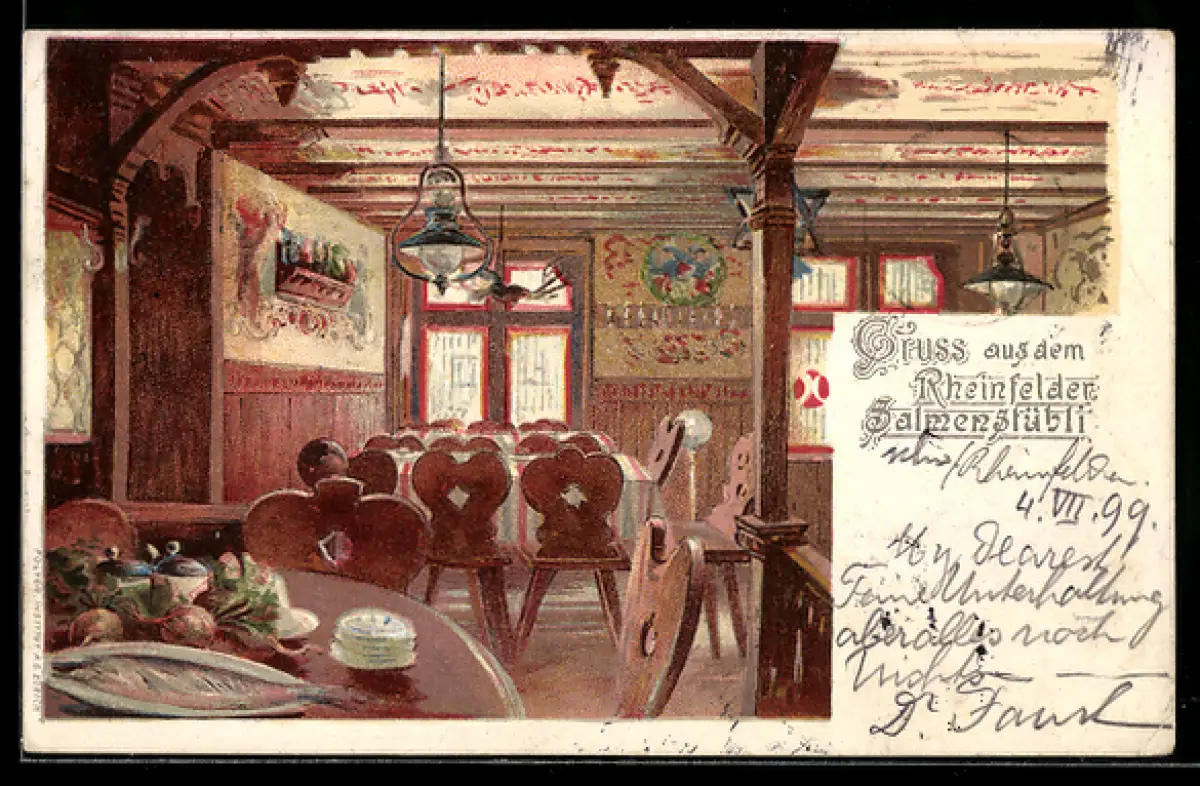 Gruss aus dem
Rheinfelder
Salmenstübli
Rheinfelden.
4. VII. 99.
My Dearest
Feine Unterhaltung
aber alles noch
Nichts
Dr. Faust